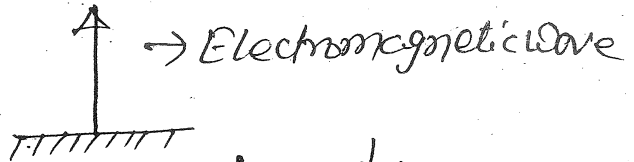 → Electromagnetic wave